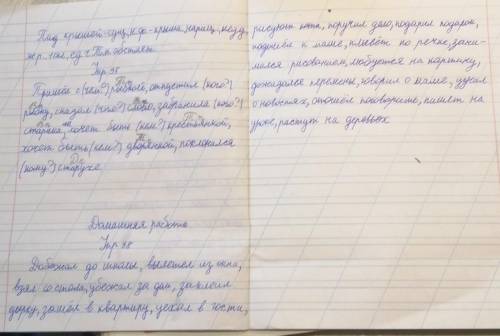 Под крышей-сущ., н.ф.-крыша, нариц., неод.,
жр., 1 скл., ед.ч., Т.п.
Упр. 95
Пришёл с (чем?) рыбкой, отпустил (кого?)
рыбку, сказал (что?) слово, забранила (кого?)
старика, хочет быть (кем?) крестьянкой,
хочет быть (кем?) дворянкой, поклонился
(кому?) старухе.
Домашняя работа
Упр. 98
Добежал до школы, вылетел из окна,
взял со стола, убежал за дом, заклеил
дырку, зашёл в квартиру, уехал в гости,
рисуют кота, поручил дело, подарил подарок,
подошёл к маме, плывёт по речке, зани-
мался рисованием, любуется на картину,
дождался перемены, говорил о маме, узнал
о новостях, отошёл поговорить, пишет на
уроке, растут на деревьях